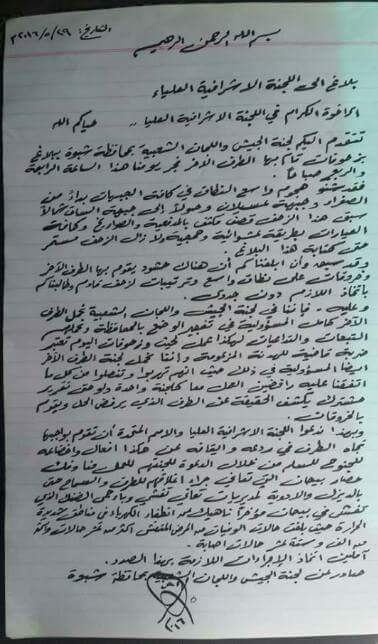 بسم الله الرحمن الرحيم
التاريخ: ٢٠١٦/٥/٢٩م
بلاغ الى اللجنة الاشرافية العلياء
الاخوة الكرام في اللجنة الاشرافية العليا ,, حياكم الله
تتقدم اليكم لجنة الجيش واللجان الشعبية بمحافظة شبوة ببلاغ
بزحوفات قام بها الطرف الآخر فجر يومنا هذا الساعة الرابعة
صباحاً.
فقد شنو هجوم واسع النطاق في كافة الجبهات بداءً من
الصفراء وجبهة عسيلان وصولاً الى جبهة الساق شمالاً
سبق هذا الزحف قصف مكثف بالمدفعية والصواريخ وكافة
العيارات بطريقة عشوائية وهمجية ولا زال الزحف مستمر
حتى كتابة هذا البلاغ
وقد سبق وأن ابلغناكم أن هناك حشود يقوم بها الطرف الآخر
وخروقات على نطاق واسع وترتيبات لزحف قادم وطالبناكم
باتخاذ اللازم دون جدوى.
وعليه - فإننا في لجنة الجيش واللجان الشعبية نحمل الطرف
الآخر كامل المسؤولية في تفجير الوضع بالمحافظة ونحملهم
التبعات والتداعيات لهكذا عمل وزحوفات اليوم تعتبر
ضربة قاضية للهدنة المزعومة وإننا نحمل لجنة الطرف الآخر
ايضاً المسؤولية في ذلك حيث انهم تهربوا وتنصلوا من كل ما
اتفقنا عليه رافضين العمل معا كلجنة واحدة ولو حتى بتقرير
مشترك يكشف الحقيقة عن الطرف الذي يرفض الحل ويقوم
بالخروقات.
وبهذا ندعوا اللجنة الاشرافية العليا والامم المتحدة أن تقوم بواجبها
تجاه الطرف في ردعه وإيقافه عن هكذا افعال واخضاعه
للجنوح للسلم من خلال الدعوة للجنتهم للعمل معنا وفك
حصار بيحان التي تعاني جراء اغلاقهم للطرق والسماح حتى
بالديزل والادوية لمديريات تعاني تفشي وباء حمى الضنك الذي
تفشى في بيحان مؤخراً ناهيك عن انطفاء الكهرباء في مناطق شديدة
الحرارة حيث بلغت حالات الوفيات من المرض المتفشي اكثر من عشر حالات واكثر
من الف وستة عشر حالات اصابة.
آملين اتخاذ الإجراءات اللازمة بهذا الصدد.
صادر عن لجنة الجيش واللجان الشعبية بمحافظة شبوة